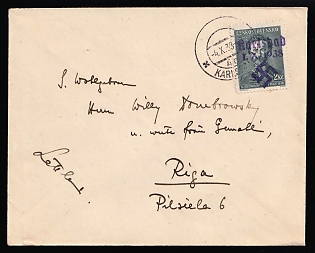 ČESKOSLOVENSKO
Karlsbad
1.X.1938
-4.X.38
KARLS
2Kč
S. Wohlgeboren
Herrn Willy Dombrowsky
u. werte Frau Gemahlin,
Lettland
Riga
Pilsiela 6